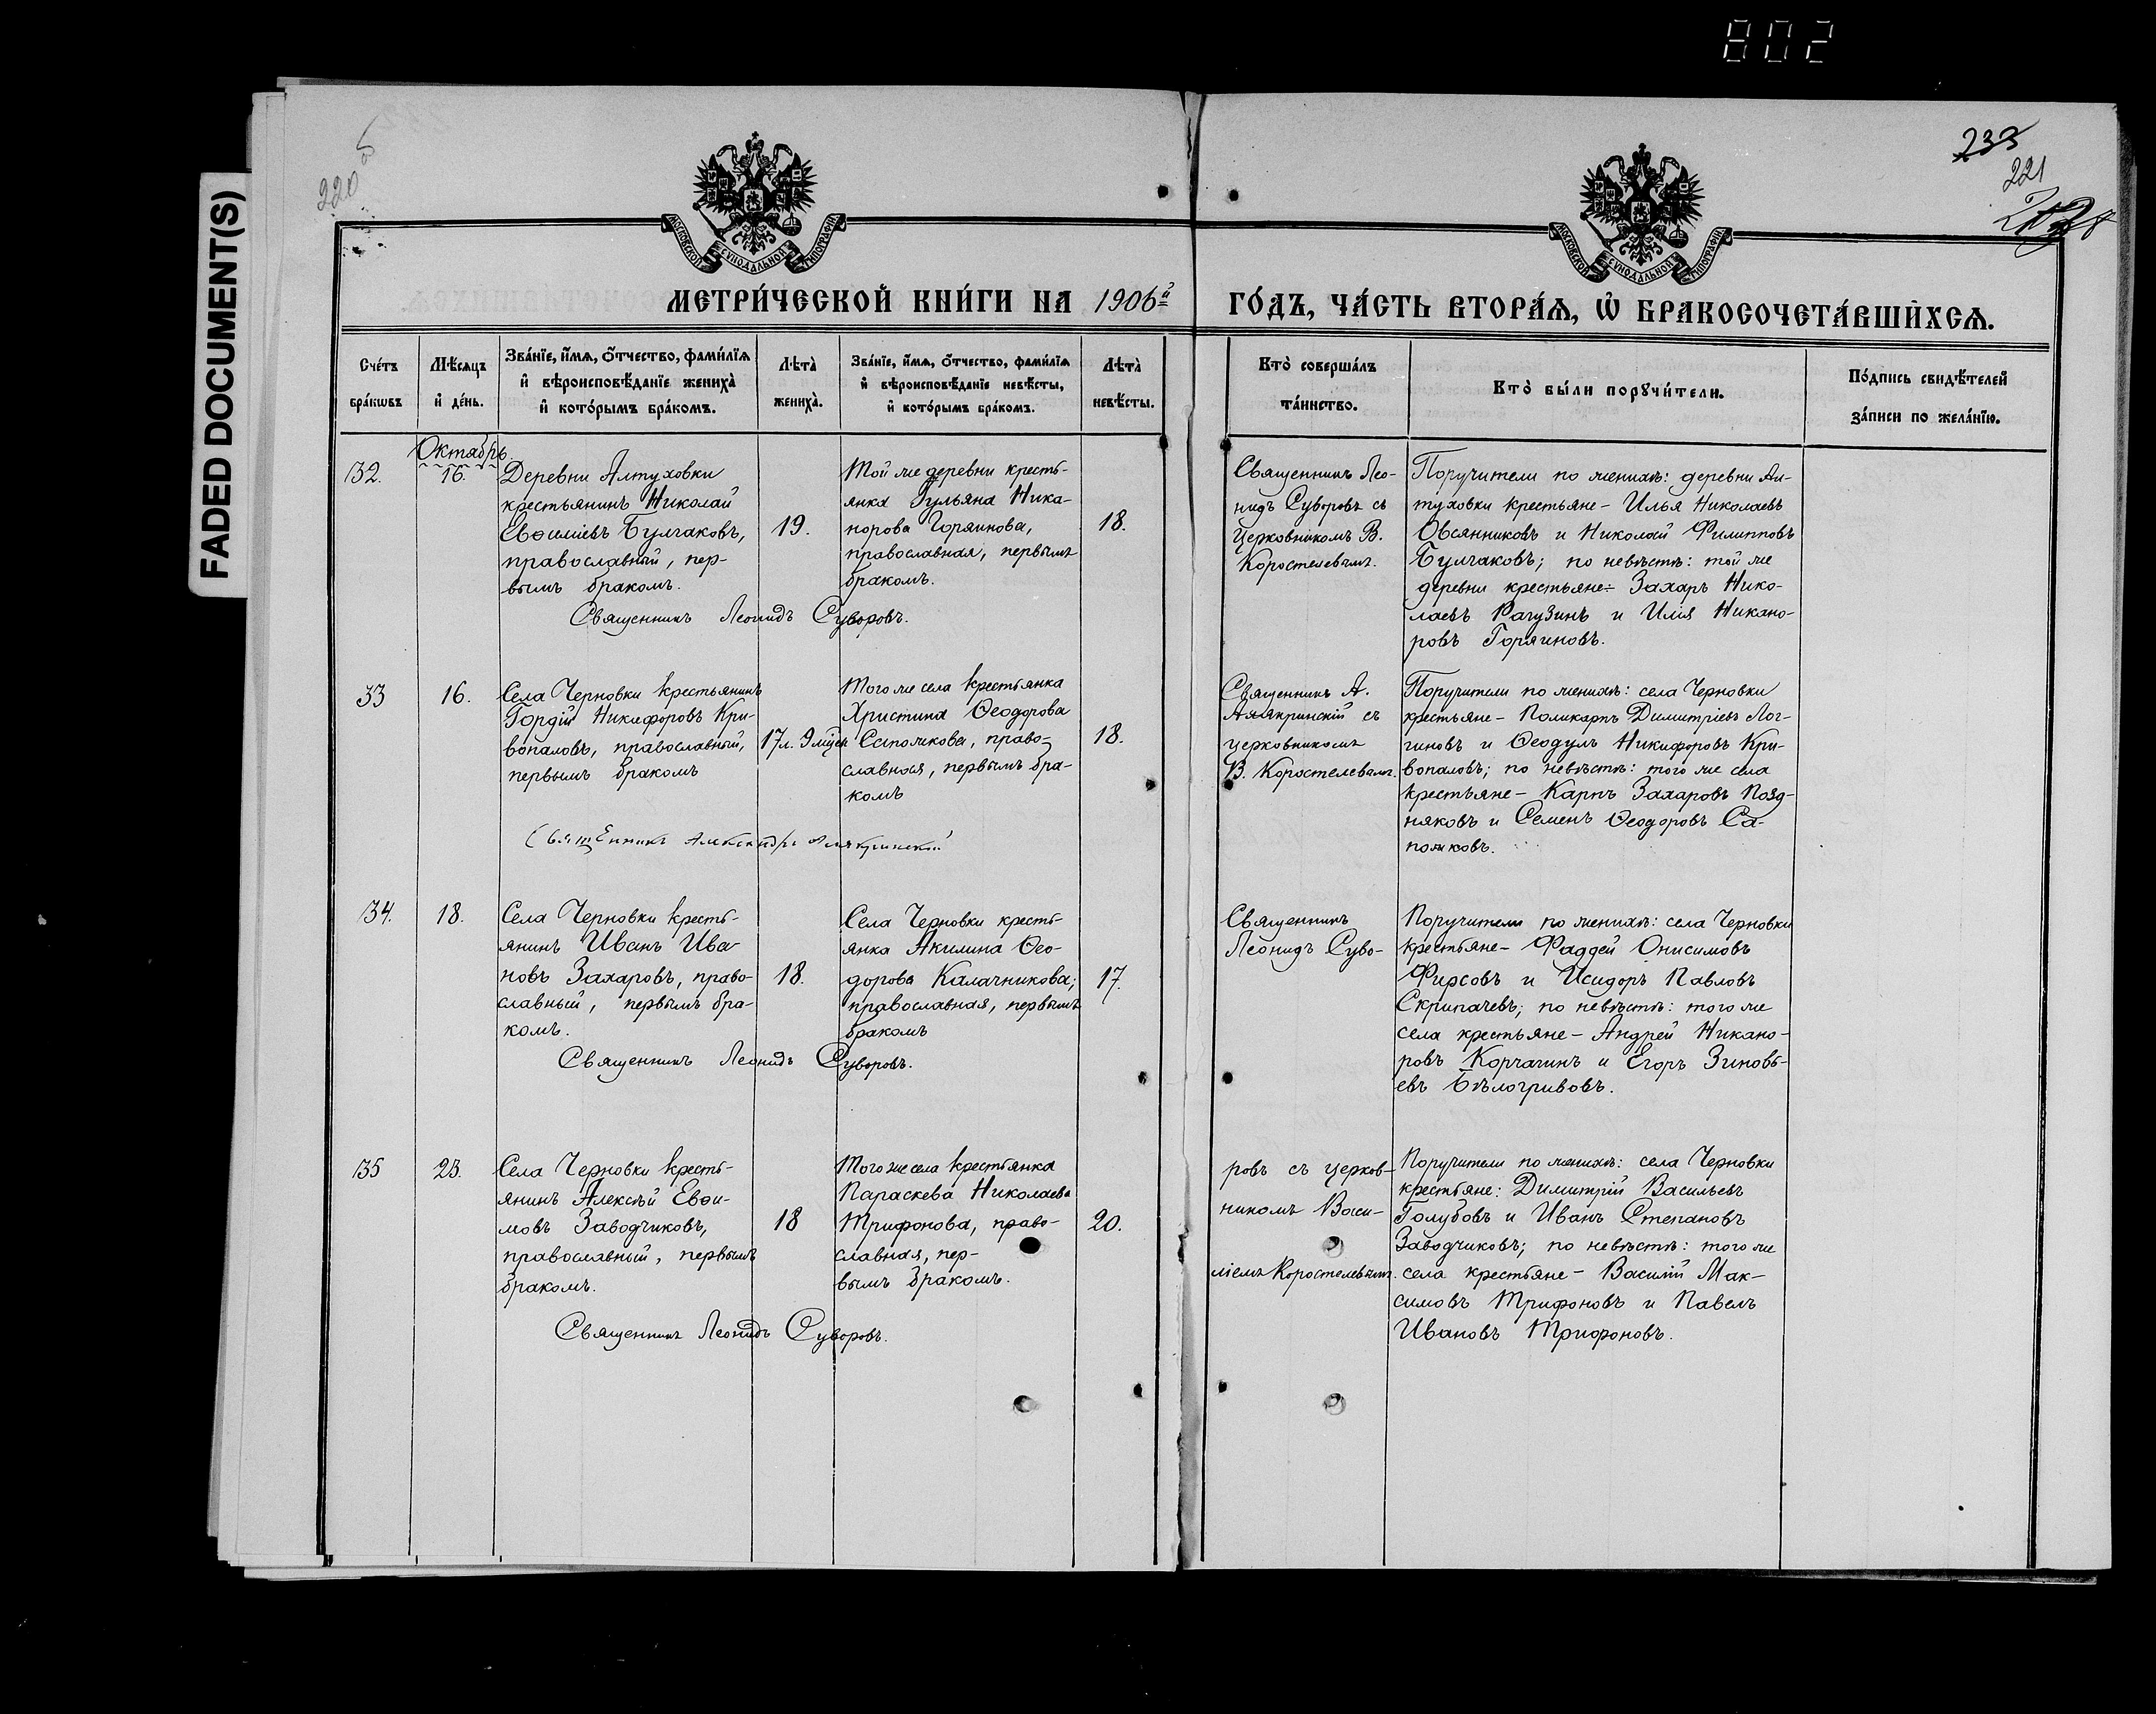 802
FADED DOCUMENT(S)
220 об
233
221
МОСКОВСКОЙ СѴНОДАЛЬНОЙ ТИПОГРАФІИ
МОСКОВСКОЙ СѴНОДАЛЬНОЙ ТИПОГРАФІИ
МЕТРИ́ЧЕСКОЙ КНИ́ГИ НА 1906й
ГО́ДЪ, ЧА́СТЬ ВТОРА́Ѧ, Ѡ҆ БРАКОСОЧЕТА́ВШИХСѦ.
Сче́тъ
бра́кѡвъ
Мѣ́сѧцъ
и҆ де́нь.
Зва́нїе, и҆́мѧ, ѻ҆́тчество, фами́лїѧ
и҆ вѣроисповѣ́данїе жениха̀
и҆ кото́рымъ бра́комъ.
Лѣта̀
жениха̀.
Зва́нїе, и҆́мѧ, ѻ҆́тчество, фами́лїѧ
и҆ вѣроисповѣ́данїе невѣ́сты,
и҆ кото́рымъ бра́комъ.
Лѣта̀
невѣ́сты.
Кто̀ соверша́лъ
та́инство.
Кто̀ бы́ли порꙋчи́тели.
По́дпись свидѣ́телей
за́писи по жела́нїю.
Октябрь.
132.
16.
Деревни Алтуховки
крестьянинъ Николай
Евѳиміевъ Булгаковъ,
православный, пер-
вымъ бракомъ.
19.
Той же деревни кресть-
янка Іульяна Ника-
норова Горяинова,
православная, первымъ
бракомъ.
18.
Священникъ Леонидъ Суворовъ.
Священникъ Лео-
нидъ Суворовъ съ
церковникомъ В.
Коростелевымъ.
Поручители по женихѣ: деревни Ал-
туховки крестьяне - Илья Николаевъ
Овсянниковъ и Николай Филипповъ
Булгаковъ; по невѣстѣ: той же
деревни крестьяне: Захаръ Нико-
лаевъ Рагузинъ и Илія Никано-
ровъ Горяиновъ.
33
16.
Села Черновки крестьянинъ
Гордій Никифоровъ Кри-
вопаловъ, православный,
первымъ бракомъ
17л. 9 мѣс.
Того же села крестьянка
Христина Ѳеодорова
Сапожкова, право-
славная, первымъ бра-
комъ
18.
Священникъ Александръ Алякринскій
Священникъ А.
Алякринскій съ
церковникомъ
В. Коростелевымъ.
Поручители по женихѣ: села Черновки
крестьяне - Поликарпъ Димитріевъ Лог-
гиновъ и Ѳеодулъ Никифоровъ Кри-
вопаловъ; по невѣстѣ: того же села
крестьяне - Карпъ Захаровъ Позд-
няковъ и Семенъ Ѳеодоровъ Са-
пожковъ.
134.
18.
Села Черновки кресть-
янинъ Иванъ Ива-
новъ Захаровъ, право-
славный, первымъ бра-
комъ.
18.
Села Черновки кресть-
янка Акилина Ѳео-
дорова Калачникова;
православная, первымъ
бракомъ
17.
Священникъ Леонидъ Суворовъ.
Священникъ
Леонидъ Суво-
Поручители по женихѣ: села Черновки
крестьяне - Фаддей Онисимовъ
Фирсовъ и Исидоръ Павловъ
Скрипачевъ; по невѣстѣ: того же
села крестьяне - Андрей Никано-
ровъ Корчагинъ и Егоръ Зиновь-
евъ Бѣлогривовъ.
135
23.
Села Черновки кресть-
янинъ Алексѣй Евѳи-
мовъ Заводчиковъ,
православный, первымъ
бракомъ.
18
Того же села крестьянка
Параскева Николаева
Трифонова, право-
славная, пер-
вымъ бракомъ.
20.
Священникъ Леонидъ Суворовъ.
ровъ съ церков-
никомъ Васи-
ліемъ Коростелевымъ.
Поручители по женихѣ: села Черновки
крестьяне: Димитрій Васильевъ
Голубовъ и Иванъ Степановъ
Заводчиковъ; по невѣстѣ: того же
села крестьяне - Василій Мак-
симовъ Трифоновъ и Павелъ
Ивановъ Трифоновъ.